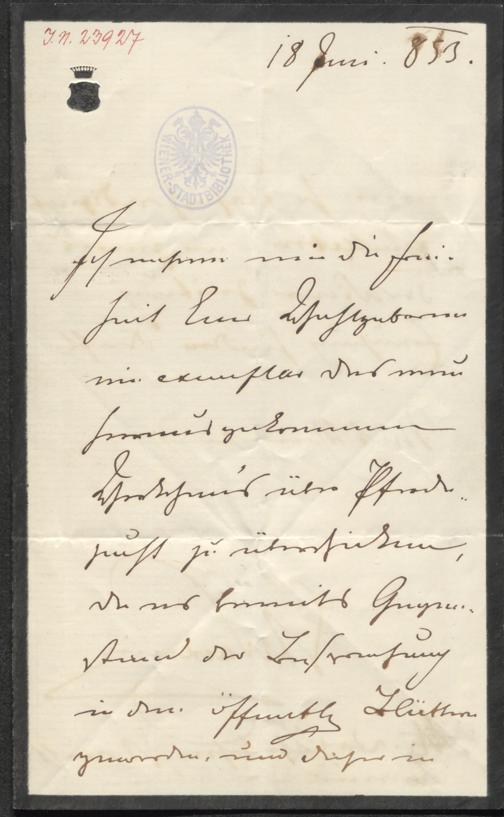 I.N. 23927
18 Juni. 853.
WIENER-STADTBIBLIOTHEK
Ich nehme mir die Frei-
heit Euer Wohlgeboren
ein exemplar des neu
herausgekommenen
über Pferde-
zucht zu überschicken,
da es bereits Gegen-
stand der Besprechung
in den öffentl Blättern
geworden, und daher in